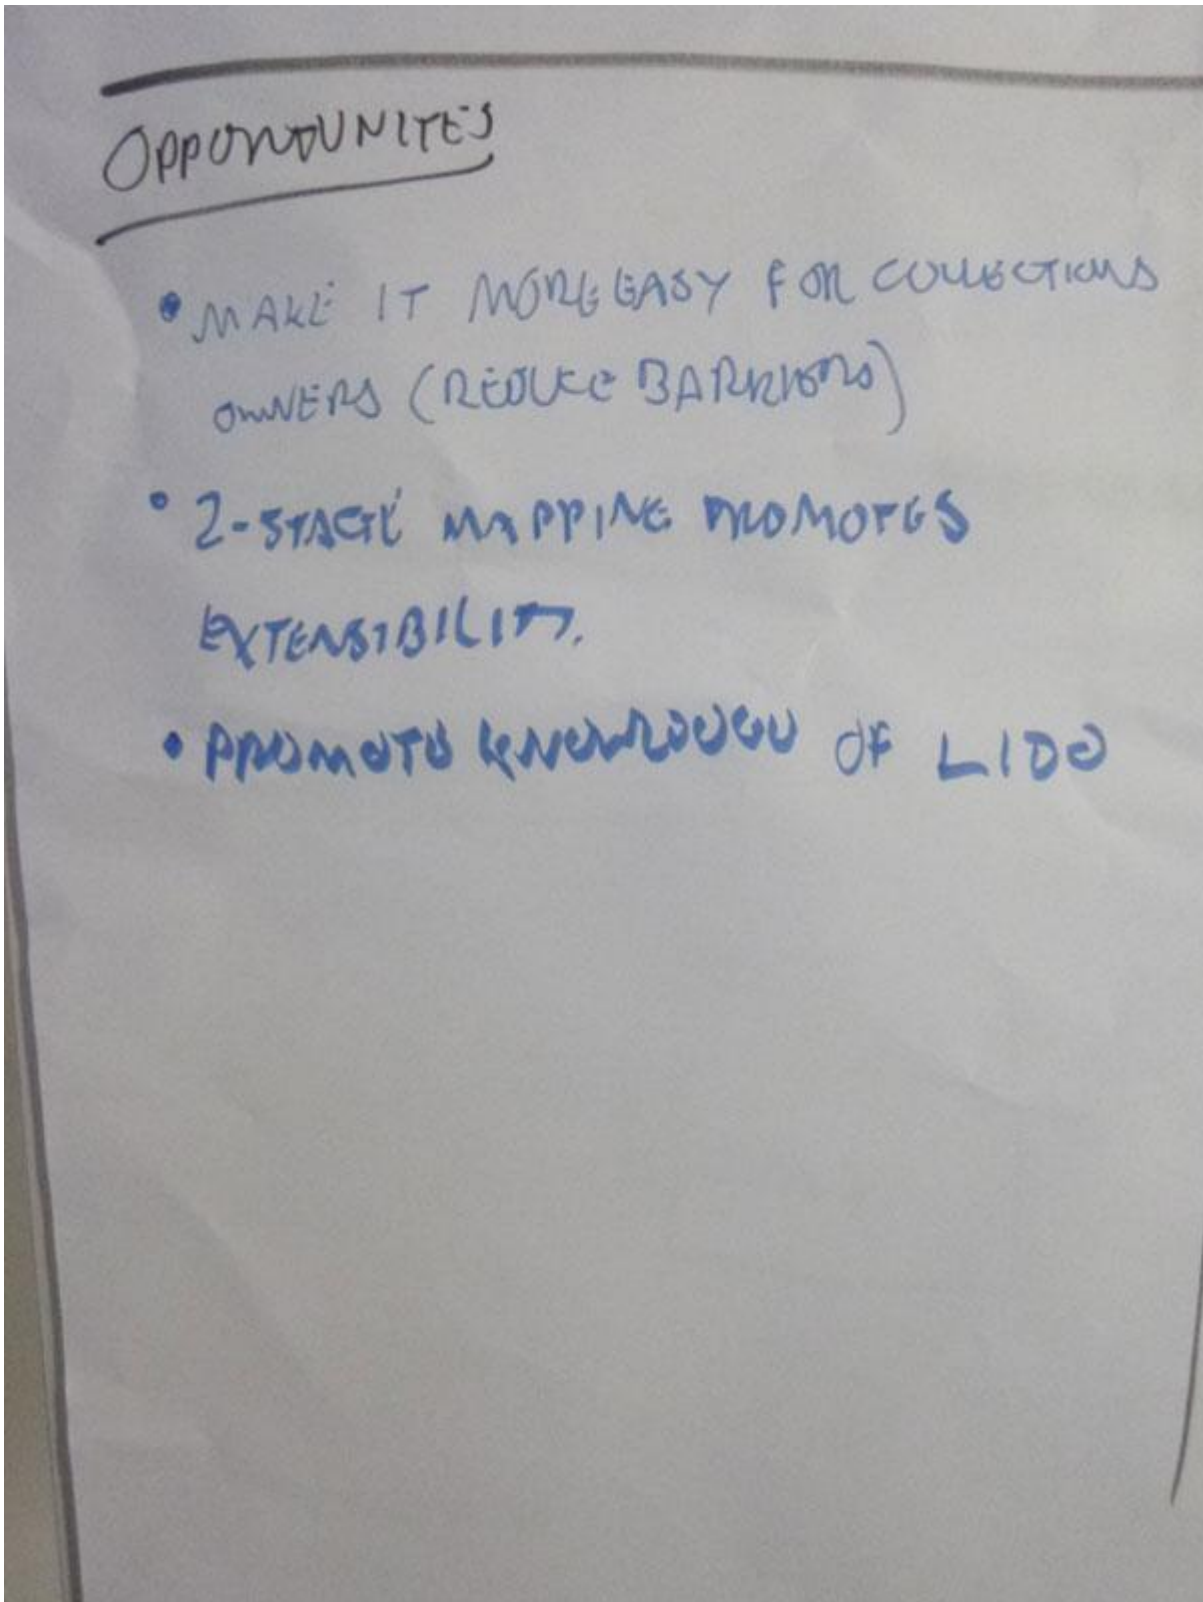 OPPORTUNITES
• MAKE IT MORE EASY FOR COLLECTIONS
OWNERS (REDUCE BARRIERS)
• 2-STAGE MAPPING PROMOTES
EXTENSIBILITY.
• PROMOTE KNOWLEDGE OF LIDO